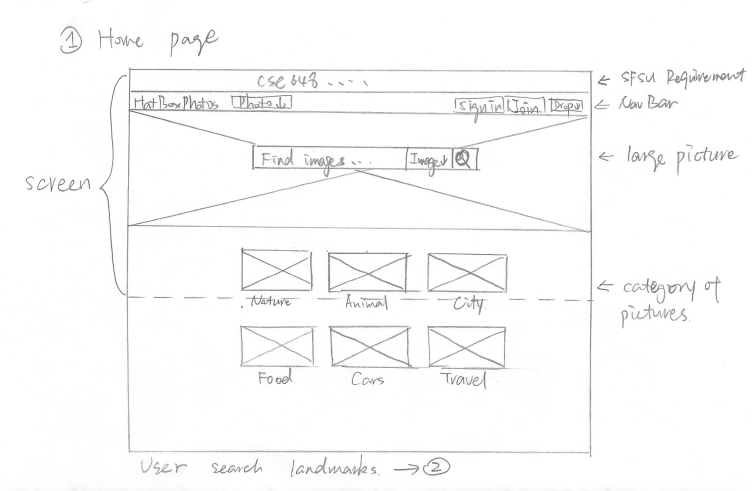 ① Home page
CSE 648 .....
← SFSU Requirement
HatBoxPhotos Photo↓ Sign in Join Drop↓
← Nav Bar
Find images... Image↓
← large picture
screen
Nature Animal City
← category of
pictures.
Food Cars Travel
User search landmarks. → ②